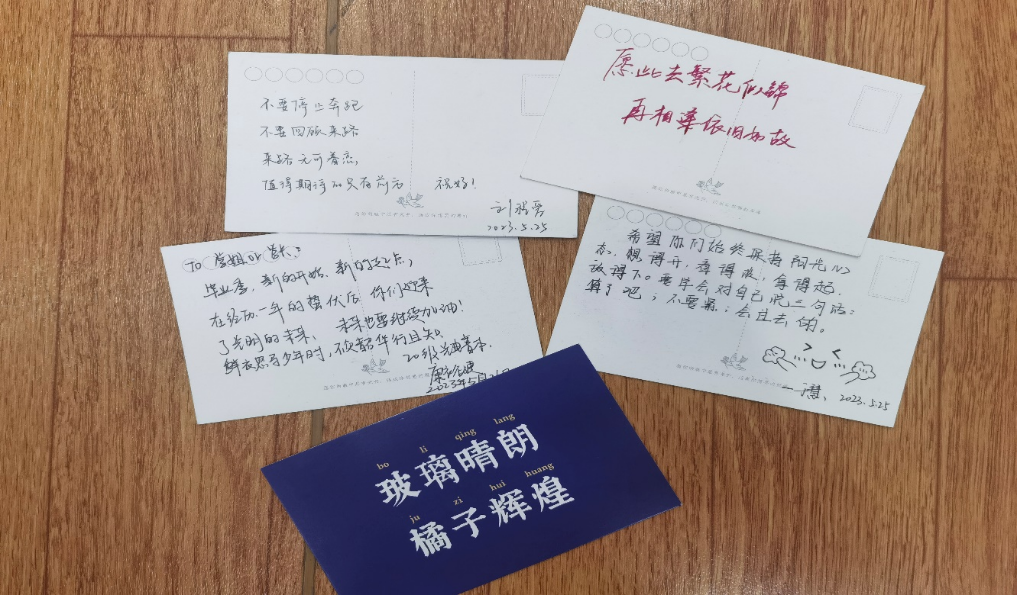 不要停止奔跑
不要回顾来路
来路无可眷恋,
值得期待的只有前方 祝好!
2023.5.25
愿此去繁花似锦
再相逢依旧如故
TO 学姐or学长:
毕业季,新的开始,新的起点,
在经历一年的蛰伏后,你们迎来
了光明的未来, 未来也要继续加油!
鲜衣怒马少年时,不负韶华行且知。
20级
2023年5月
希望你们始终保持阳光心
态,想得开,看得淡,拿得起,
放得下。要学会对自己说三句话:
算了吧;不要紧;会过去的。
2023.5.25
bo li qing lang
玻璃晴朗
ju zi hui huang
橘子辉煌